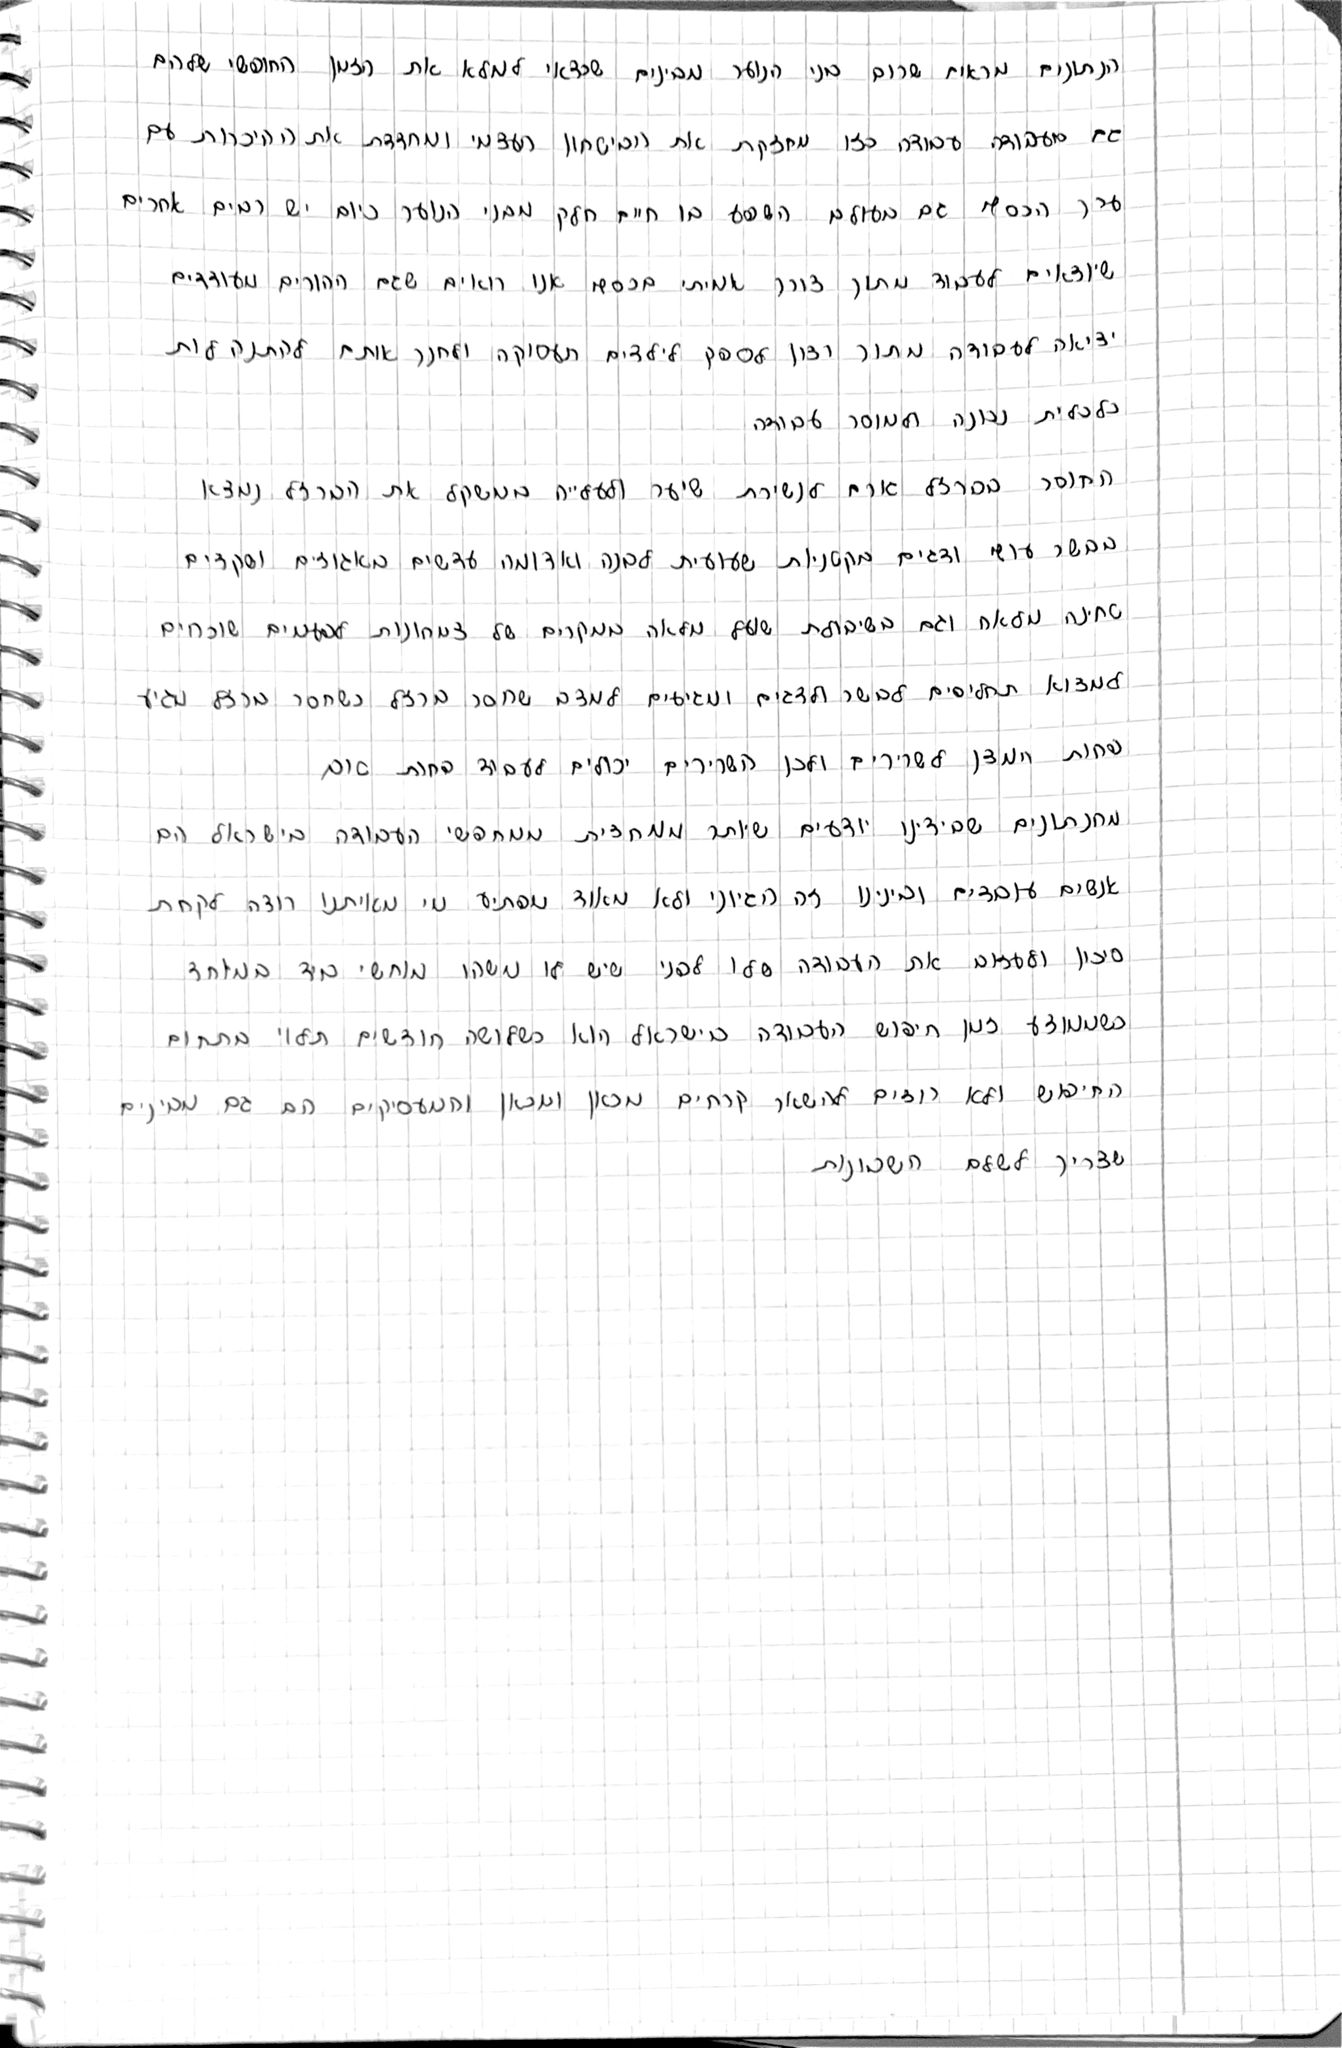 הנתונים מראים שרוב בני הנוער מבינים שכדאי למלא את הזמן החופשי שלהם
גם בעבודה עבודה כזו מחזקת את הביטחון העצמי ומחדדת את ההיכרות עם
ערך הכסף גם בעולם השפע בו חיים חלק מבני הנוער כיום יש רבים אחרים
שיוצאים לעבוד מתוך צורך אמיתי בכסף אנו רואים שגם ההורים מעודדים
יציאה לעבודה מתוך רצון לספק לילדים תעסוקה ולחנך אותם להתנהלות
כלכלית נכונה ולמוסר עבודה
החוסר בברזל גורם לנשירת שיער ולעלייה במשקל את הברזל נמצא
בבשר עוף ודגים בקטניות שעועית לבנה ואדומה עדשים באגוזים ושקדים
טחינה מלאה וגם בשיבולת שועל מלאה במקרים של צמחונות לפעמים שוכחים
למצוא תחליפים לבשר ולדגים ומגיעים למצב שחסר ברזל כשחסר ברזל מגיע
פחות חמצן לשרירים ולכן השרירים יכולים לעבוד פחות טוב
מהנתונים שבידינו יודעים שיותר ממחצית ממחפשי העבודה בישראל הם
אנשים עובדים ובינינו זה הגיוני ולא מאוד מפתיע מי מאיתנו רוצה לקחת
סיכון ולעזוב את העבודה שלו לפני שיש לו משהו מוחשי ביד במיוחד
כשממוצע זמן חיפוש העבודה בישראל הוא כשלושה חודשים תלוי בתחום
החיפוש ולא רוצים להשאר קרחים מכאן ומכאן והמעסיקים הם גם מבינים
שצריך לשלם חשבונות